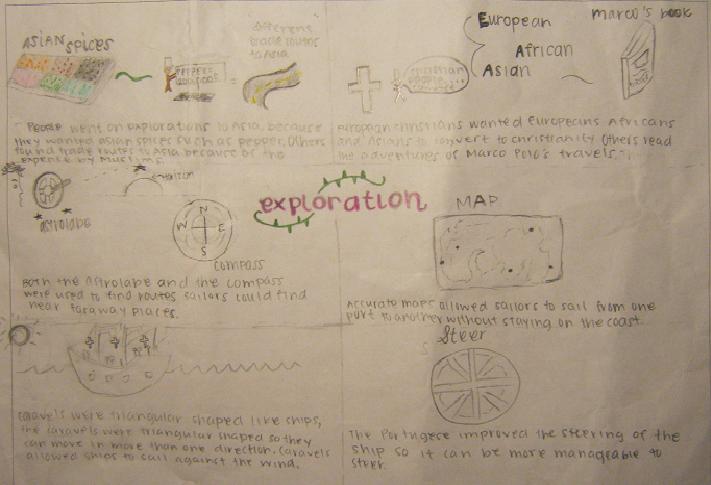 ASIAN SPICES
different
trade routes
to Asia
PEPPERS
People went on explorations to Asia, because
they wanted asian spices such as pepper. Others
found trade routes to Asia because of the
expense by Muslims.
European
African
Asian
marco's book
christian
people
European christians wanted Europeans Africans
and Asians to convert to christianity. Others read
the adventures of Marco Polo's travels.
exploration
horizon
astrolabe
N
W E
S
compass
Both the Astrolabe and the compass
were used to find routes sailors could find
near faraway places.
MAP
Accurate maps allowed sailors to sail from one
port to another without staying on the coast.
caravels were triangular shaped like ships,
the caravels were triangular shaped so they
can move in more than one direction. Caravels
allowed ships to sail against the wind.
Steer
The Portugese improved the steering of the
ship so it can be more manageable to
steer.